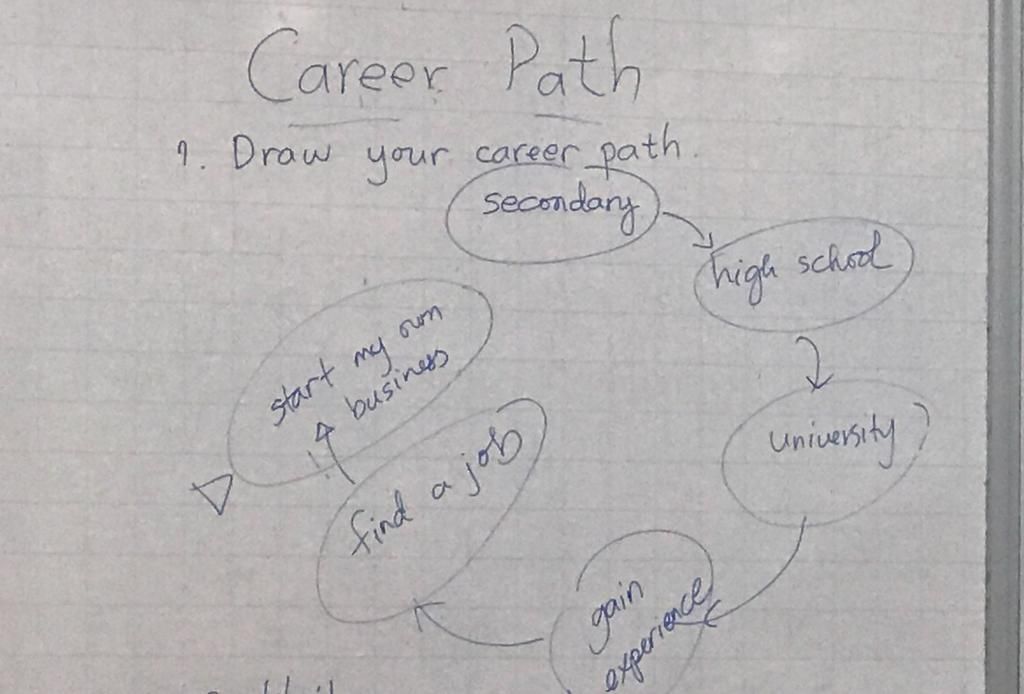 Career Path
1. Draw your career path.
secondary
high school
university
gain
experience
find a job
start my own
business